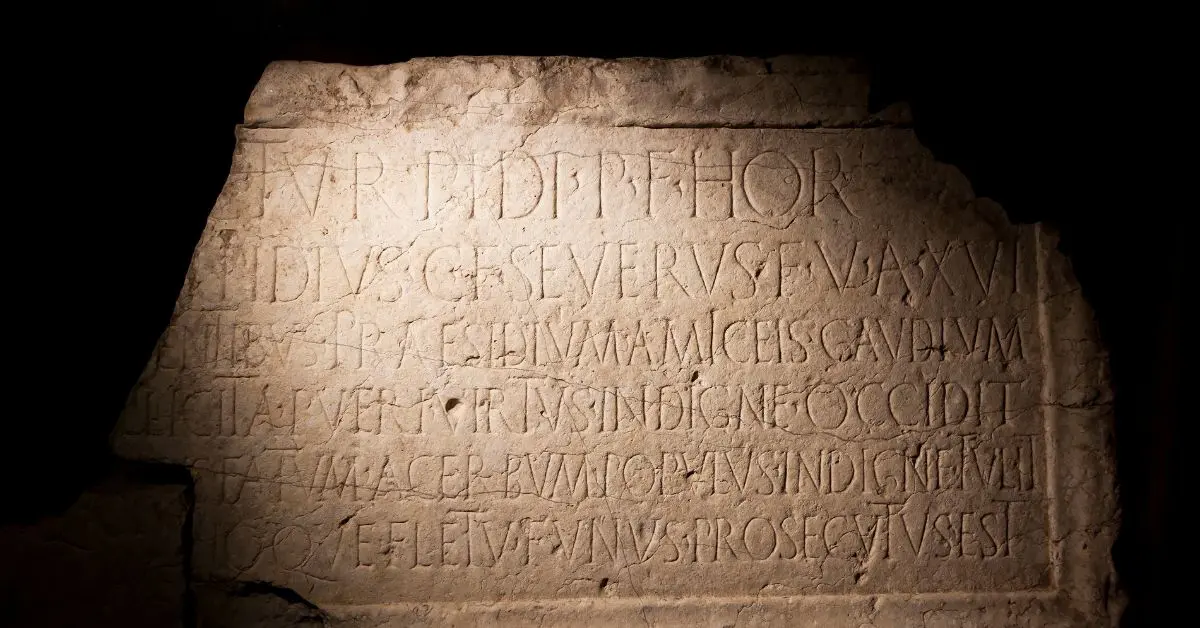 TVR·PIDI·P·P·F·HOR
IDIVS·G·F·SEVERVS·F·V·A·XVI
PRAESIDIVM·AMICEIS·GAVDIVM
PVERI·VIRTVS·INDIGNE·OCCIDIT
FATVM·ACERBVM·POPVLVS·INDIGNE·TVLIT
QVE·FLETV·FVNVS·PROSECVTVS·EST